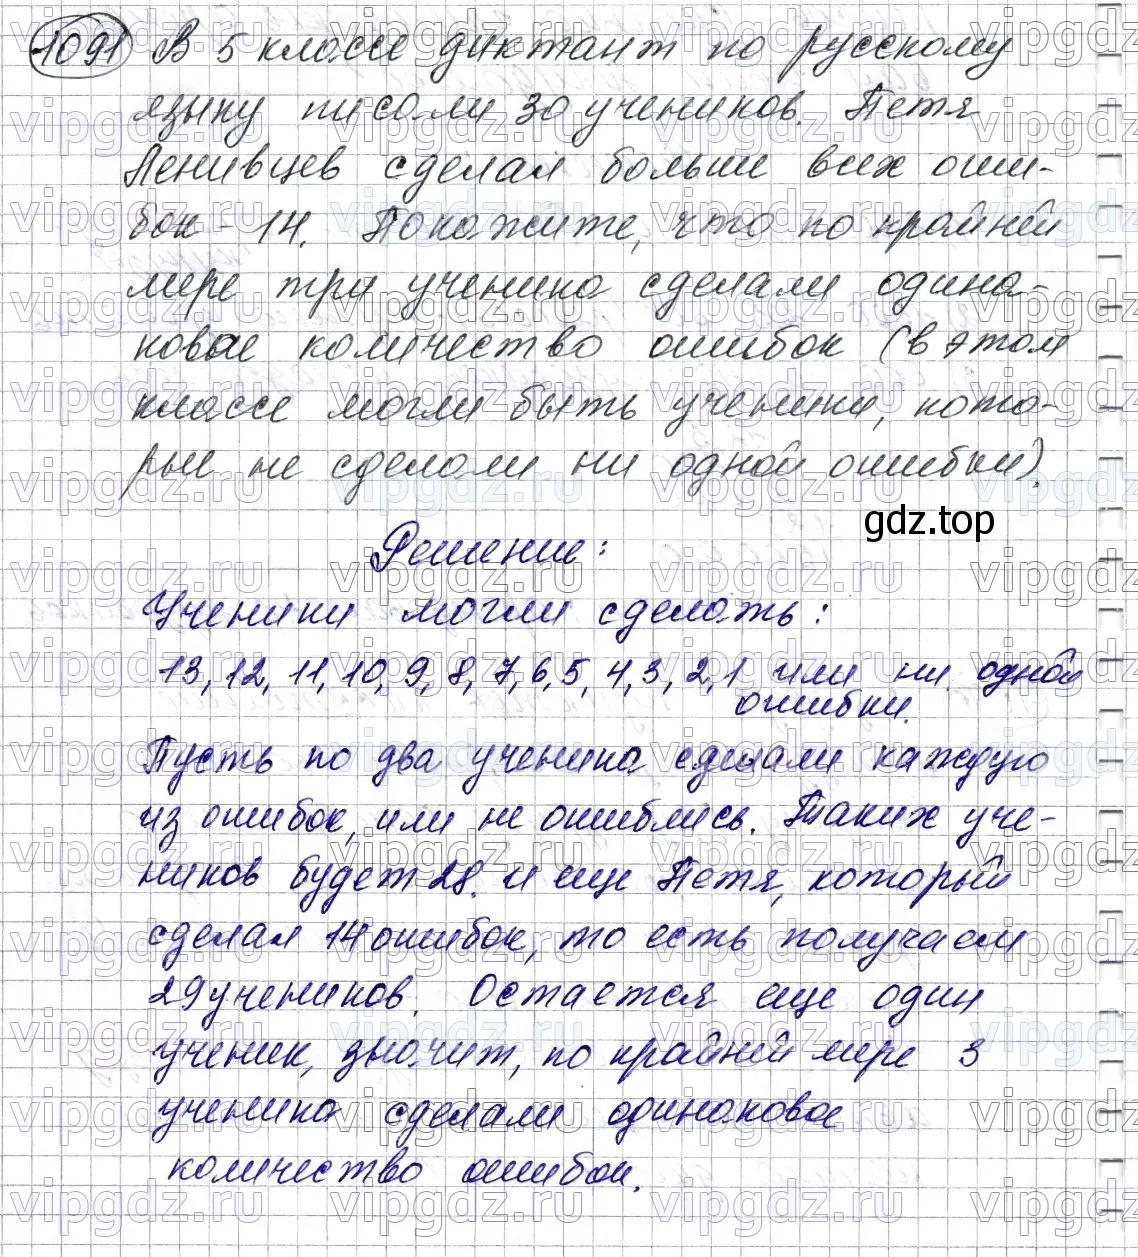 1091 В 5 классе диктант по русскому
языку писали 30 учеников. Петя
Ленивцев сделал больше всех оши-
бок - 14. Докажите, что по крайней
мере три ученика сделали одина-
ковое количество ошибок (в этом
классе могли быть ученики, кото-
рые не сделали ни одной ошибки).
gdz.top
Решение:
Ученики могли сделать:
13, 12, 11, 10, 9, 8, 7, 6, 5, 4, 3, 2, 1 или ни одной
ошибки.
Пусть по два ученика сделали каждую
из ошибок, или не ошиблись. Таких уче-
ников будет 28. и еще Петя, который
сделал 14 ошибок, то есть получаем
29 учеников. Остается еще один
ученик, значит, по крайней мере 3
ученика сделали одинаковое
количество ошибок.
vipgdz.ru